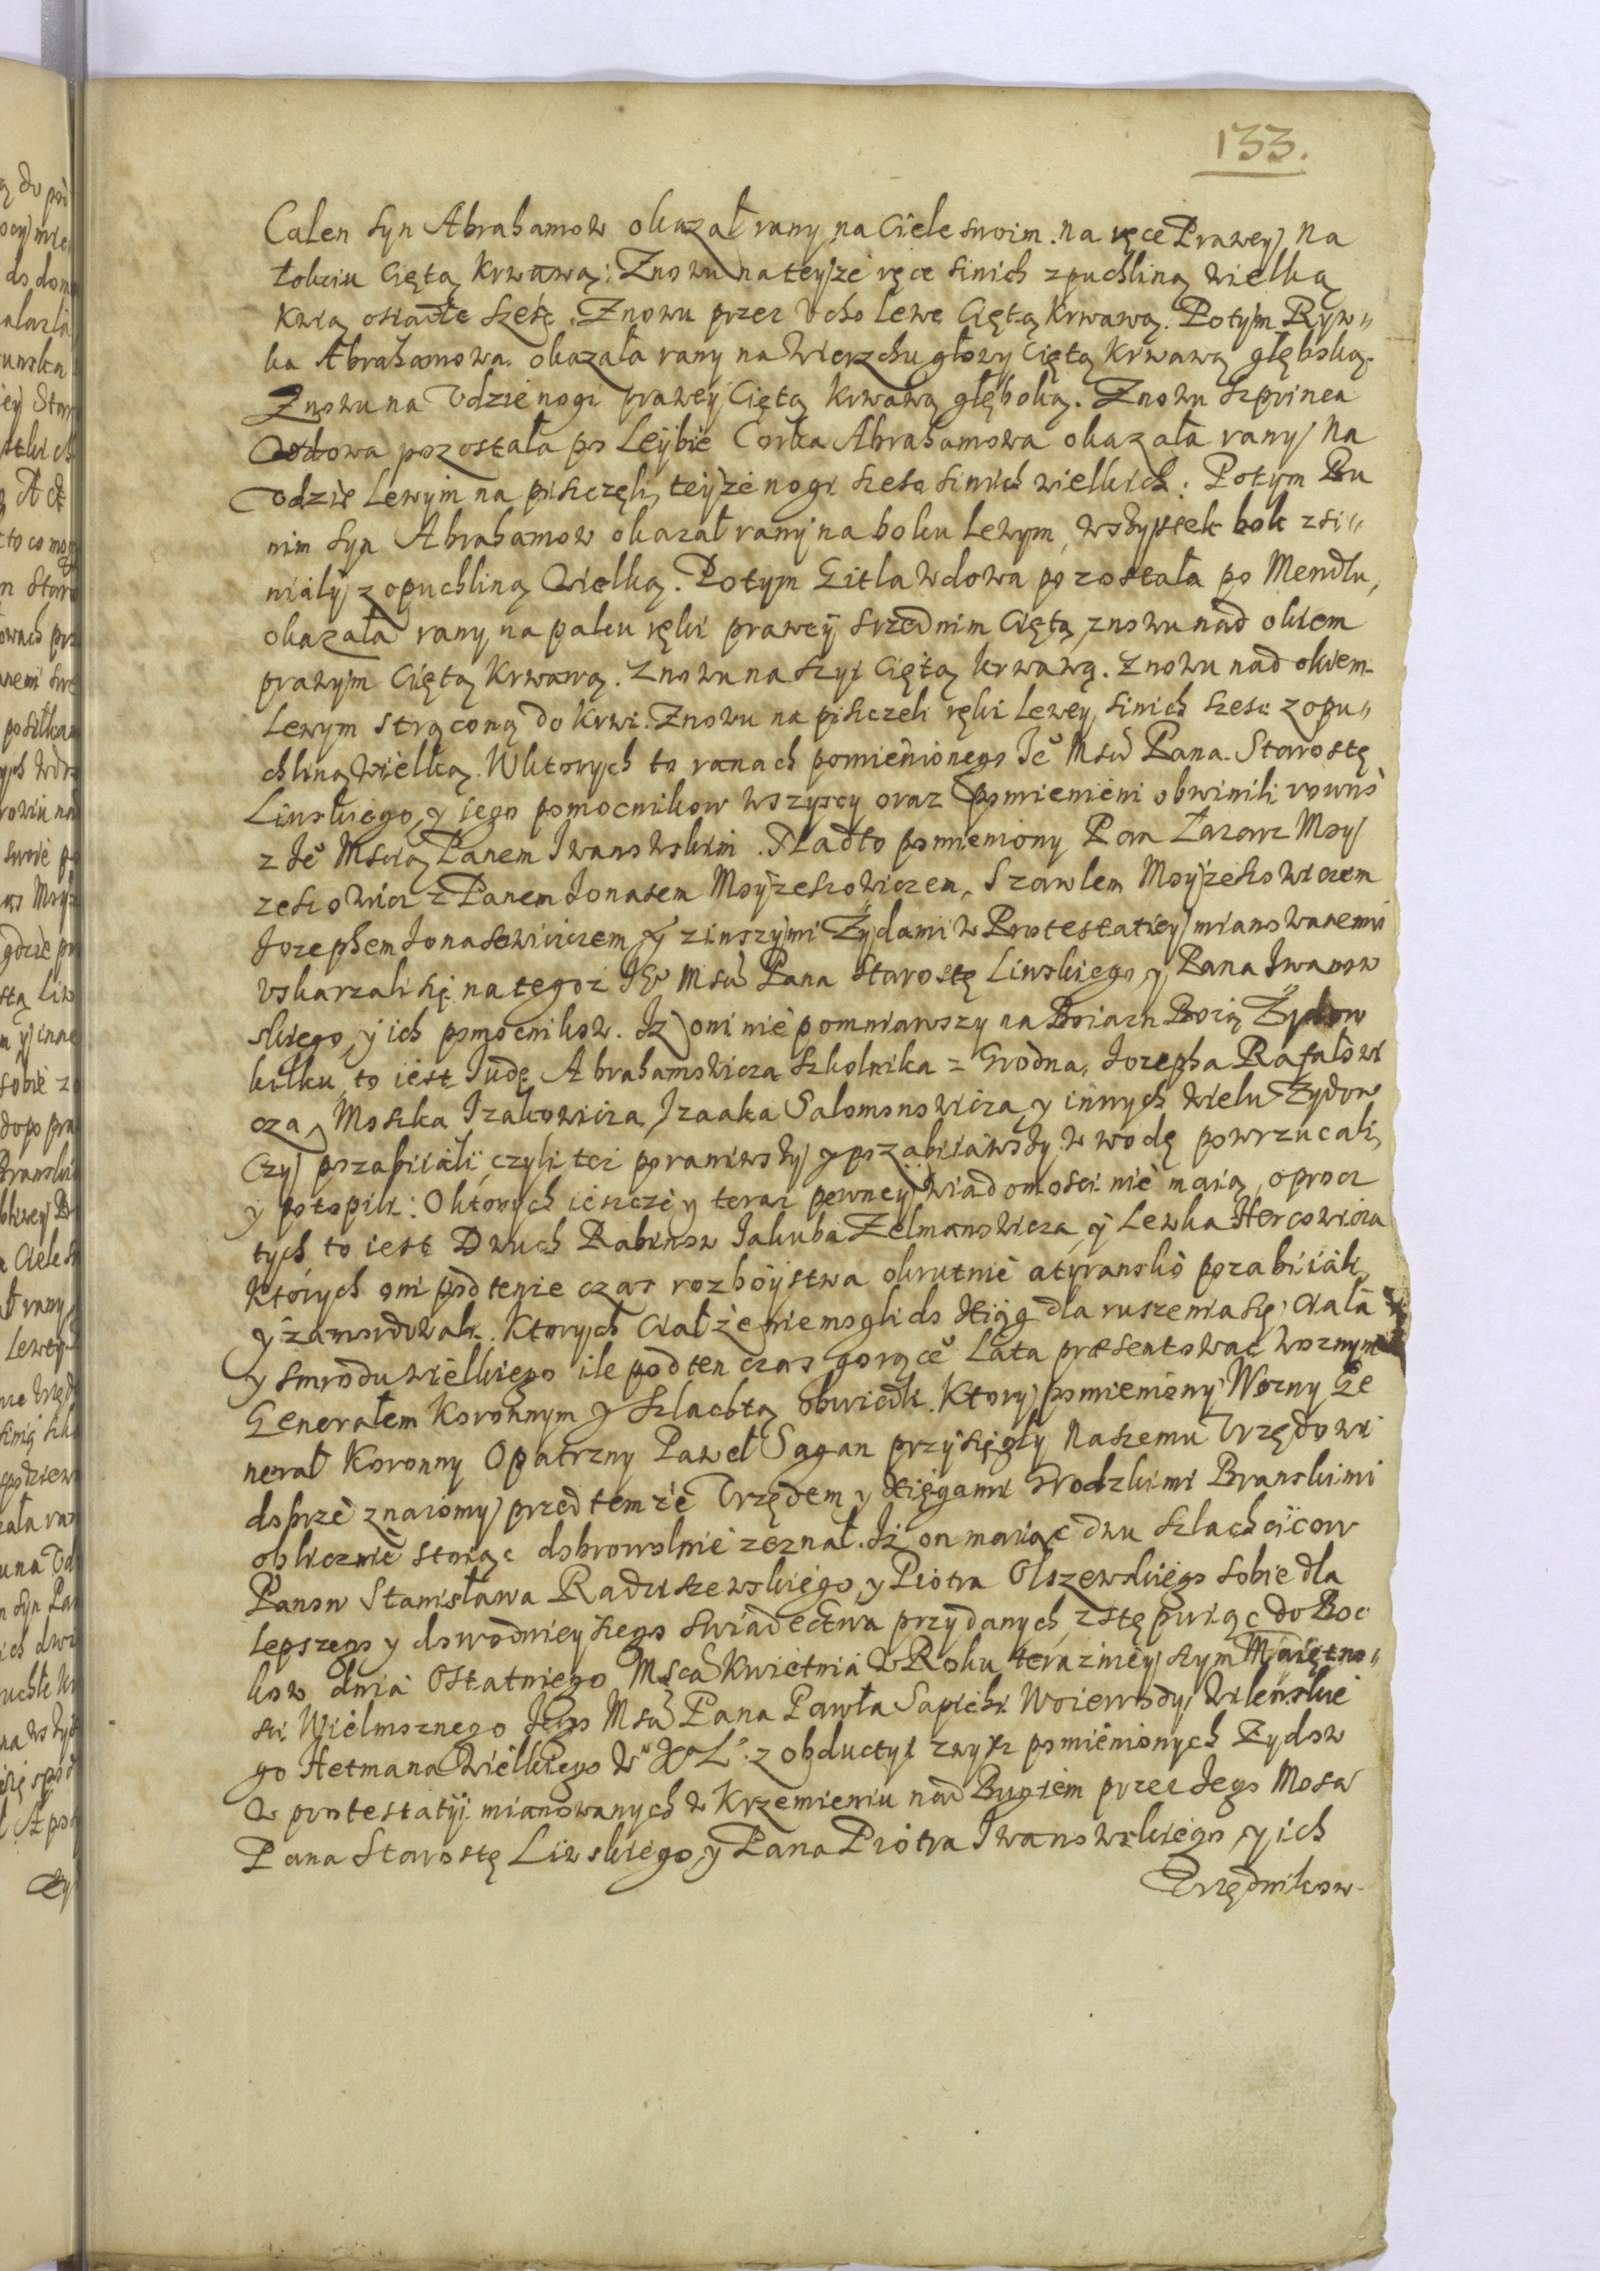 133.
Calen syn Abrahamow okazał rany na Ciele swoim. na ręce Prawey na
łokciu Ciętą Krwawą: Znowu na teyże ręce sinich z puchliną wielką
Krwią osiadłe sześć. Znowu przez Ucho Lewe Ciętą Krwawą. Potym Ryw„
ka Abrahamowa okazała rany na Wierzchu głowy Ciętą Krwawą głęboką.
Znowu na Udzie nogi prawey Ciętą Krwawą głęboką. Znowu Szprinca
Wdowa pozostała po Leybie Corka Abrahamowa okazała rany na
Udzie Lewym na piszczęli teyże nogi szesc sinich wielkich: Potym Bu
nim syn Abrahamow okazał rany na boku Lewym, wszystek bok zsi„
niały z opuchliną Wielką. Potym Gitla Wdowa pozostała po Mendlu,
okazała rany na palcu ręki prawey srzednim Ciętą, znowu nad okiem
prawym Ciętą Krwawą. Znowu na szyi Ciętą krwawą. Znowu nad okiem
Lewym strąconą do Krwi. Znowu na piszczeli ręki Lewey sinich szesc z opu„
chliną wielką. W ktorych to ranach pomienionego Je° Msci Pana Starostę
Liwskiego, y iego pomocnikow wszyscy oraz pomienieni obwinili rowno
z Je° Mscią Panem Iwanowskim. Nadto pomieniony Pan Łazarz Moy
zeszowicz z Panem Jonasem Moyzeszowiczem, Szawlem Moyzeszowiczem
Jozephem Jonasewiczem y z inszymi Żydami w Protestatiey mianowanemi
Uskarzali się na tegoz Je° Msci Pana Starostę Liwskiego y Pana Iwanow
skiego, y ich pomocnikow. Iż oni nie pomniawszy na Boiazn Bożą Żydow
kilku, to iest Judę Abrahamowicza Szkolnika z Grodna, Jozepha Rafałowi
cza, Moszka Izakowicza, Izaaka Salomonowicza, y innych wielu Żydow
Czy pozabiiali, czyli tez poraniwszy y pozabiiawszy w wodę powrzucali,
y potopili: O ktorych ieszcze y teraz pewney wiadomosci nie maią, oprocz
tych, to iest Dwuch Rabinow Jakuba Zelmanowicza, y Lewka Hercowicza
Ktorych oni pod tenże czas rozboystwa okrutnie a tyransko pozabiiali,
y zamordowali. Ktorych Ciał że nie mogli do Xiąg dla ruszenia się ciała
y smrodu wielkiego ile pod ten czas gorące° Lata præsentować woznym
Generałem Koronnym y Szlachtą obwiedli. Ktory pomieniony Wozny Ge
nerał Koronny Opatrzny Paweł Sagan przysięgły Naszemu Urzędowi
dobrze znaiomy przed temże Urzędem y Xięgami Grodzkimi Branskimi
oblicznie stoiąc dobrowolnie zeznał. Iż on maiąc dwu Szlachcicow
Panow Stanisława Raduszewskiego, y Piotra Olszewskiego sobie dla
Lepszego y dowodnieyszego swiadectwa przydanych, zstępuiąc do Boc
kow dnia Ostatniego Msca Kwietnia w Roku terazniey szym Maiętno„
sci Wielmoznego Jego Msci Pana Pawła Sapiehi Woiewody Wilenskie
go Hetmana Wielkiego W° X° L° z obductyi zwysz pomienionych Żydow
w protestatyi mianowanych w Krzemieniu nad Bugiem przez Jego Mosci
Pana Starostę Liwskiego, y Pana Piotra Iwanowskiego, y ich
Urzędnikow